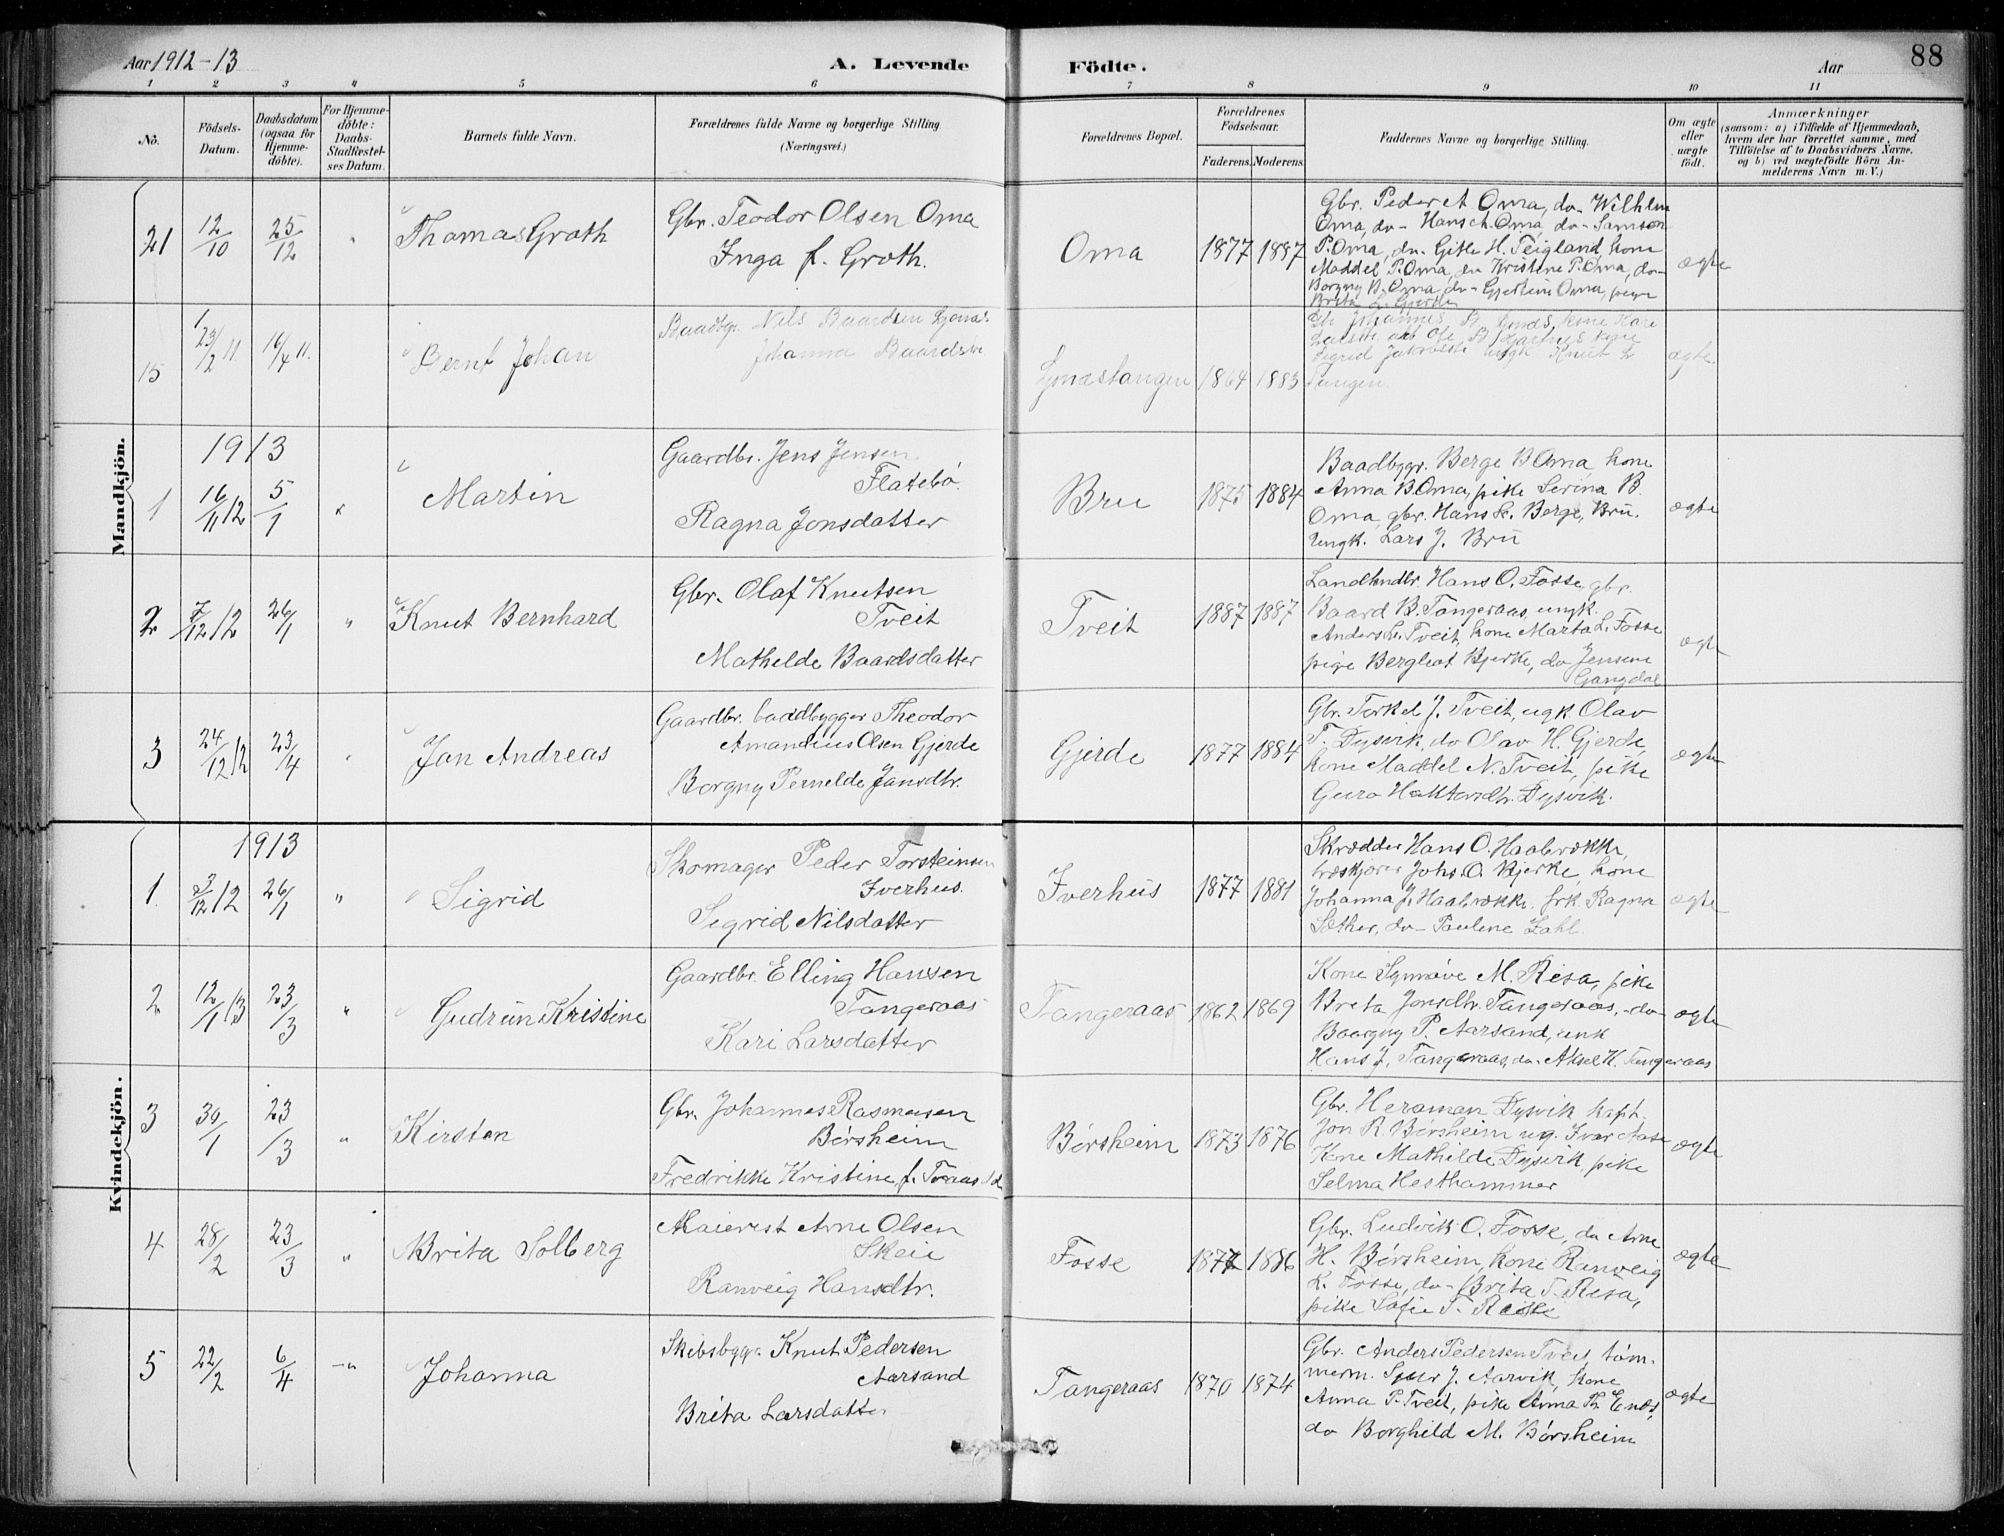 Aar 1912-13
A. Levende
Födte.
Aar
88
1 2 3 4 5 6 7 8 9 10 11
No.
Födsels-Datum.
Daabsdatum (ogsaa for Hjemme-döbte).
For Hjemme-döbte: Daabs-Stadfæstel-ses Datum.
Barnets fulde Navn.
Forældrenes fulde Navne og borgerlige Stilling (Næringsvei.)
Forældrenes Bopæl.
Forældrenes Födselsaar.
Faderens. Moderens.
Faddernes Navne og borgerlige Stilling.
Om ægte eller uægte födt.
Anmærkninger
(saasom: a) i Tilfælde af Hjemmedaab, hvem der har forrettet samme, med Tilföielse af to Daabsvidners Navne, og b) ved uægtefödte Börn Anmelderens Navn m.V.)
Mandkjön.
21 12/10 25/12 " Thomas Groth
Gbr. Teodor Olsen Oma
Inga f. Groth.
Oma 1877 1887
Gbr. Peder et Oma, do- Wilhlm
Oma, do- Hans ch. Oma, do- Samson
P. Oma, do- Gitle H. Teigland, kone
Maddel P. Oma, do Kristine P. Oma, do-
Borgny B. Oma, do- Gjertine Oma, pige
Brita L. Gjerde
ægte
15 23/2 11. 16/4 11. Bernt Johan
Baadbgr. Nils Baardsen
Johanna Baardsdtr
1864 1883
Johannes B. kone Kari
Tangen.
ægte
1913
1 16/11 12 5/1 " Martin
Gaardbr. Jens Jensen
Flatebö.
Ragna Jonsdatter
Bru 1875 1884
Baadbyggr. Berge B Oma, kone
Anna B. Oma, pike Serina B.
Oma, gbr. Hans L. Berge, Bru.
Ungk. Lars J. Bru
ægte
2 7/12 12 26/1 " Knut Bernhard
Gbr. Olaf Knutsen
Tveit
Mathelde Baardsdatter
Tveit 1887 1887
Landhndlr. Hans O. Fosse, gbr.
Baard B. Tangeraas, ungk.
Anders L. Tveit, kone Marta L. Fosse
pige Bergliot Bjerke, do Jensene
Gangdal
ægte
3 24/12 12 23/4 " Jan Andreas
Gaardbr. baadbygger Theodor
Amandius Olsen Gjerde
Borgny Pernelde Jansdtr.
Gjerde 1877 1884
Gbr. Torkel J. Tveit, ugk Olav
T. Dysvik, do Olav H. Gjerde,
kone Maddel N. Tveit, pike
Guro Haktorsdtr. Dysvik.
ægte
Kvindekjön.
1913
1. 3/12 12 26/1 " Sigrid
Skomager Peder Torsteinsen
Iverhus.
Sigrid Nilsdatter
Iverhus 1877 1881
Skrædder Hans O. Haabrække,
træskjærer Johs. O. Bjerke, kone
Johanna J. Haabrække, frk Ragna
Sæther, do- Pauline Zahl.
ægte
2 12/1 13 23/3 " Gudrun Kristine
Gaardbr. Elling Hansen
Tangeraas
Kari Larsdatter
Tangeraas 1862 1869
Kone Synnöve M. Risa, pike
Brita Jonsdtr. Tangeraas, -do-
Baargny P. Aarsand, unk
Hans J. Tangeraas, do- Aksel H. Tangeraas
ægte
3 30/1 23/3 " Kirsten
Gbr. Johannes Rasmusen
Börsheim
Fredrikke Kristine f. Traas
Börsheim 1873 1876
Gbr. Herman Dysvik kapt.
Jon R. Börsheim ug. Ivar Aase
Kone Mathilde Dysvik, pike
Selma Hesthammer
ægte
4 28/2 23/3 " Brita Solberg
Maierist Arne Olsen
Skeie
Ranveig Hansdtr.
Fosse 1877 1886
Gbr. Ludvik O. Fosse, do Arne
H. Börsheim, kone Ranveig
L. Fosse, do- Brita T. Risa,
pike Sofie T.
ægte
5 22/2 6/4 -" Johanna
Skibsbygr. Knut Pedersen
Aarsand
Brita Larsdatter
Tangeraas 1870 1874
Gbr. Anders Pedersen Tveit, töm-
merm. Sjur J. Aarvik, kone
Anna P. Tveit, pike Anna Th. Enæs,
do Borghild M. Börsheim
ægte